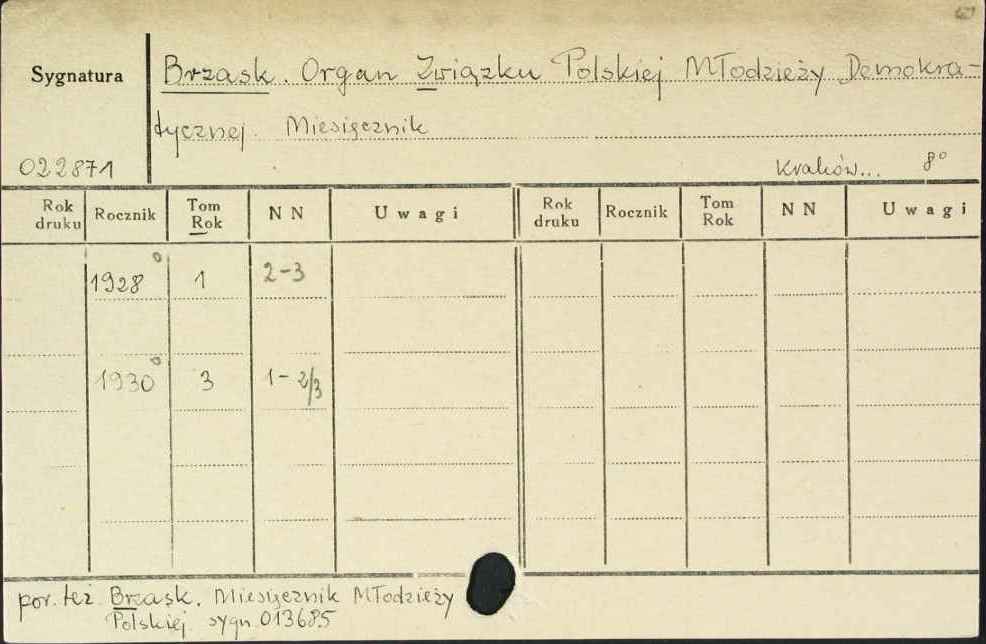 Sygnatura Brzask. Organ Związku Polskiej Młodzieży Demokra-
tycznej. Miesięcznik
022871 Kraków... 8°
Rok druku Rocznik Tom Rok NN Uwagi Rok druku Rocznik Tom Rok NN Uwagi
1928° 1 2-3
1930° 3 1-2/3
por. też Brzask. Miesięcznik Młodzieży
Polskiej sygn. 013685